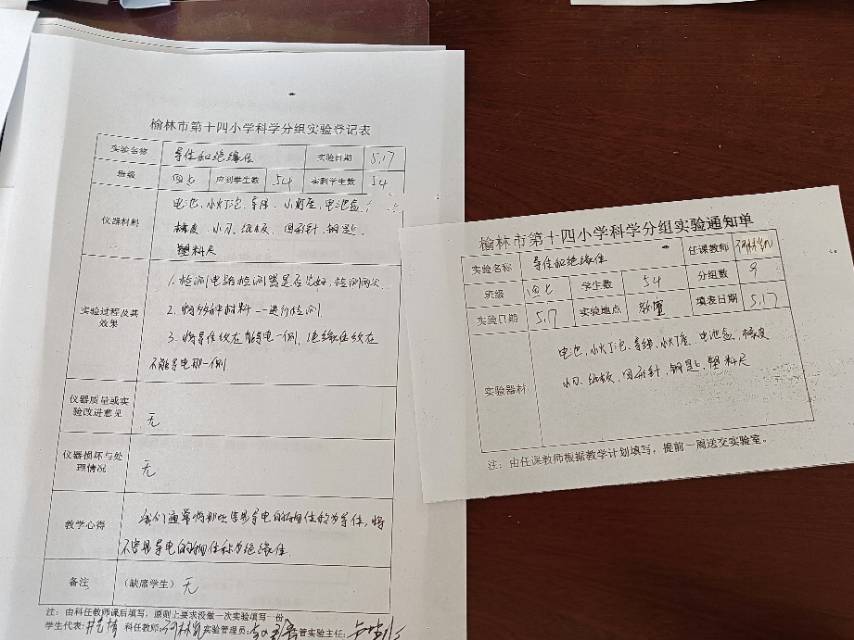 榆林市第十四小学科学分组实验登记表
实验名称 导体和绝缘体 实验日期 5.17
班级 四七 应到学生数 54 实到学生数 54
仪器材料
电池、小灯泡、导线、小灯座、电池盒、
橡皮、小刀、纸板、回形针、钥匙、
塑料尺
实验过程及其
效果
1. 检测电路检测器是否完好,检测两次
2. 物多种材料一一进行检测
3. 将导体放在能导电一侧,绝缘体放在
不能导电那一侧
仪器质量或实
验改进意见
无
仪器损坏与处
理情况
无
教学心得
我们通常将那些容易导电的物体称为导体,将
不容易导电的物体称为绝缘体
备注 (缺席学生) 无
注:由科任教师课后填写,原则上要求没做一次实验填写一份
学生代表: 科任教师: 实验管理员: 管实验主任:
榆林市第十四小学科学分组实验通知单
实验名称 导体和绝缘体 任课教师
班级 四七 学生数 54 分组数 9
实验日期 5.17 实验地点 教室 填表日期 5.17
实验器材
电池、小灯泡、导线、小灯座、电池盒、橡皮
小刀、纸板、回形针、钥匙、塑料尺
注:由任课教师根据教学计划填写,提前一周送交实验室。